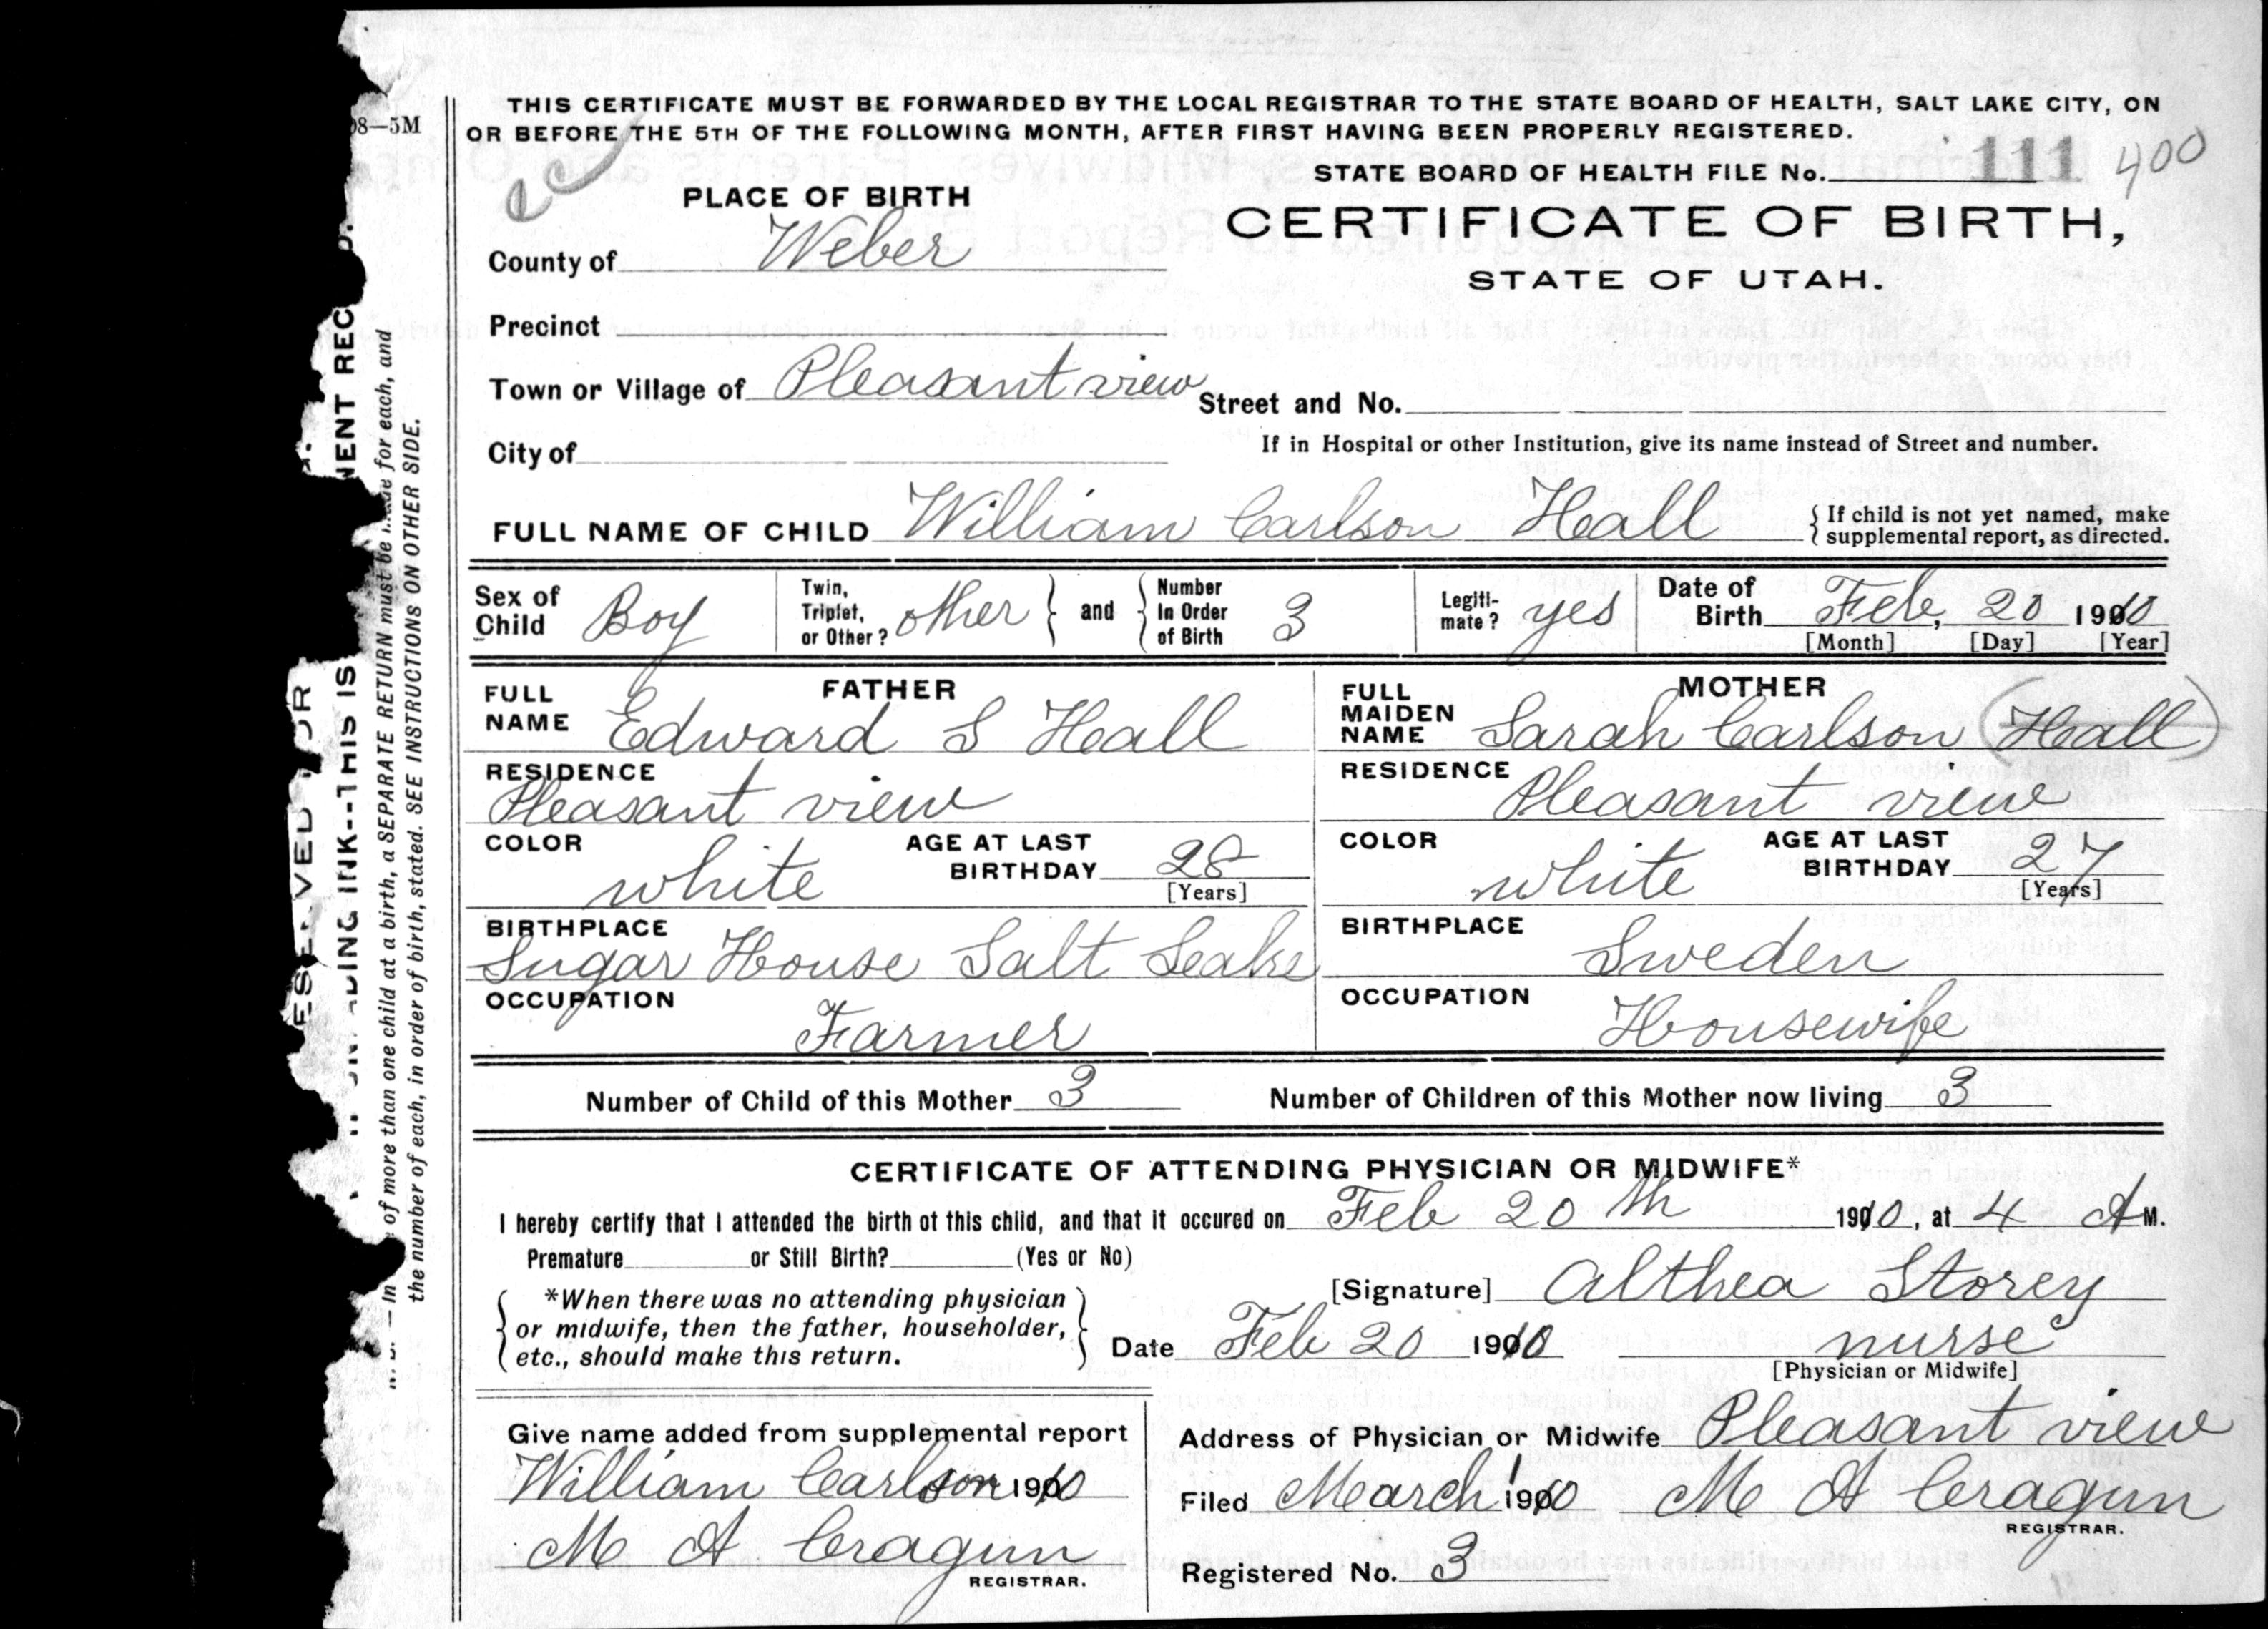 08—5M
THIS CERTIFICATE MUST BE FORWARDED BY THE LOCAL REGISTRAR TO THE STATE BOARD OF HEALTH, SALT LAKE CITY, ON
OR BEFORE THE 5TH OF THE FOLLOWING MONTH, AFTER FIRST HAVING BEEN PROPERLY REGISTERED.
STATE BOARD OF HEALTH FILE No. 111 400
PLACE OF BIRTH
CERTIFICATE OF BIRTH,
STATE OF UTAH.
County of Weber
Precinct
Town or Village of Pleasant view
Street and No.
City of
If in Hospital or other Institution, give its name instead of Street and number.
FULL NAME OF CHILD William Carlson Hall
{ If child is not yet named, make
supplemental report, as directed.
Sex of Child Boy
Twin, Triplet, or Other? other } and { Number In Order of Birth 3
Legiti-mate? yes
Date of Birth Feb, 20 1910
[Month] [Day] [Year]
FATHER
FULL NAME Edward S Hall
RESIDENCE
Pleasant view
COLOR white
AGE AT LAST BIRTHDAY 28
[Years]
BIRTHPLACE
Sugar House Salt Leake
OCCUPATION
Farmer
MOTHER
FULL MAIDEN NAME Sarah Carlson (Hall)
RESIDENCE
Pleasant view
COLOR white
AGE AT LAST BIRTHDAY 27
[Years]
BIRTHPLACE
Sweden
OCCUPATION
Housewife
Number of Child of this Mother 3
Number of Children of this Mother now living 3
CERTIFICATE OF ATTENDING PHYSICIAN OR MIDWIFE*
I hereby certify that I attended the birth of this child, and that it occured on Feb 20th 1910, at 4 A M.
Premature or Still Birth? (Yes or No)
[Signature] Althea Storey
{ *When there was no attending physician
or midwife, then the father, householder,
etc., should make this return. }
Date Feb 20 1910
nurse
[Physician or Midwife]
Give name added from supplemental report
William Carlson 1910
M A Cragun
REGISTRAR.
Address of Physician or Midwife Pleasant view
Filed March 1 1910 M A Cragun
REGISTRAR.
Registered No. 3
of more than one child at a birth, a SEPARATE RETURN must be made for each, and
the number of each, in order of birth, stated. SEE INSTRUCTIONS ON OTHER SIDE.
INK--THIS IS